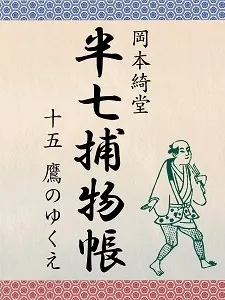 岡本綺堂
半七捕物帳
十五 鷹のゆくえ